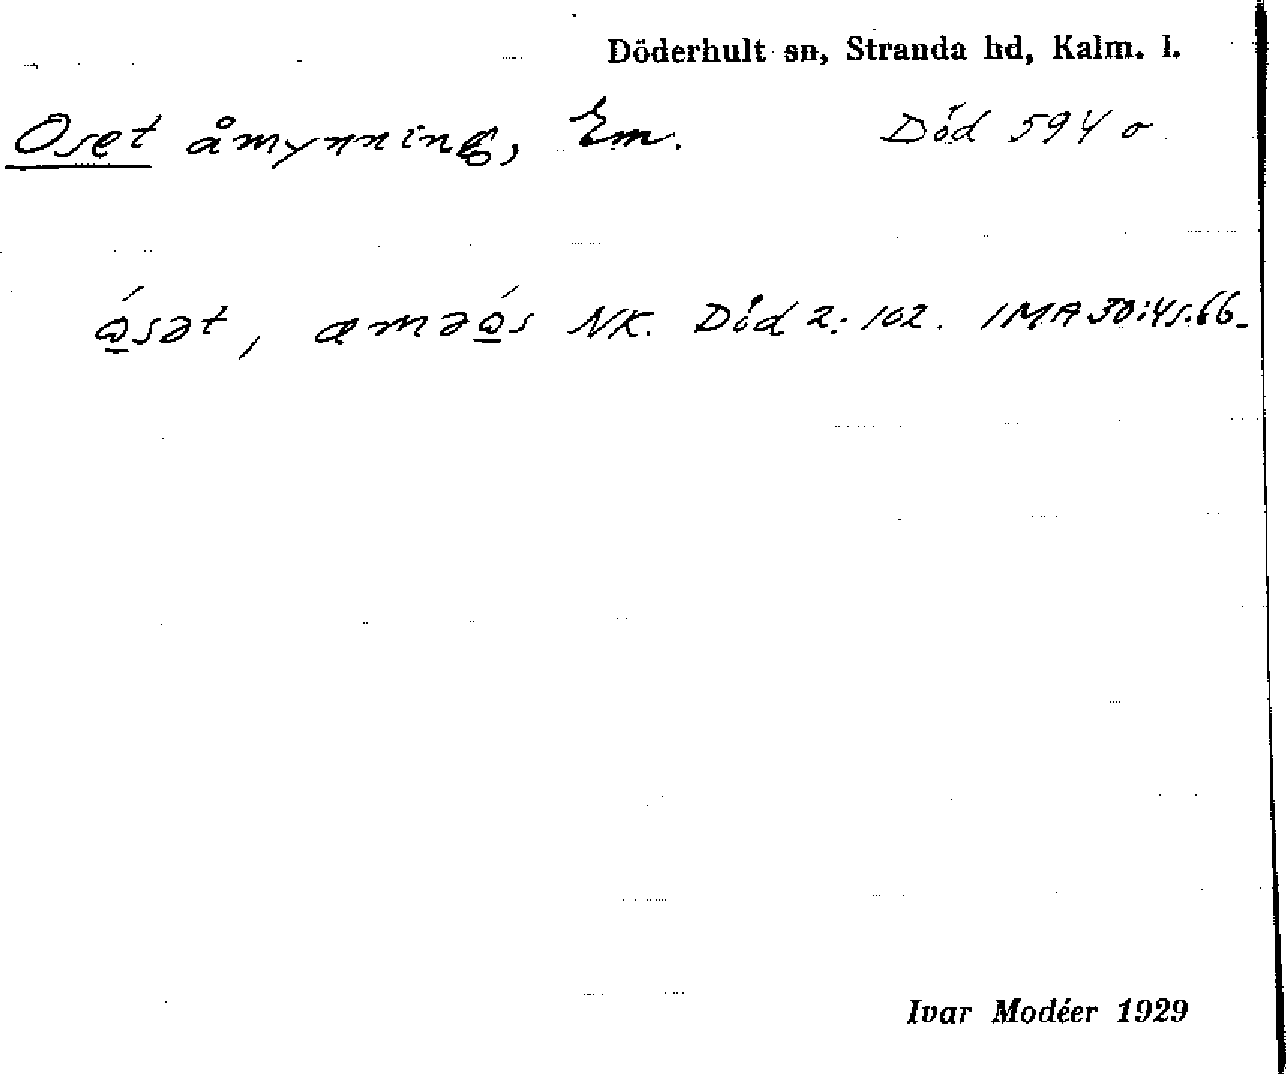 Döderhult sn, Stranda hd, Kalm. l.
Oset åmynning, Em. Död 594 o
ó̲sət, aməó̲s NK. Död 2:102. IMA30:45.66.
Ivar Modéer 1929